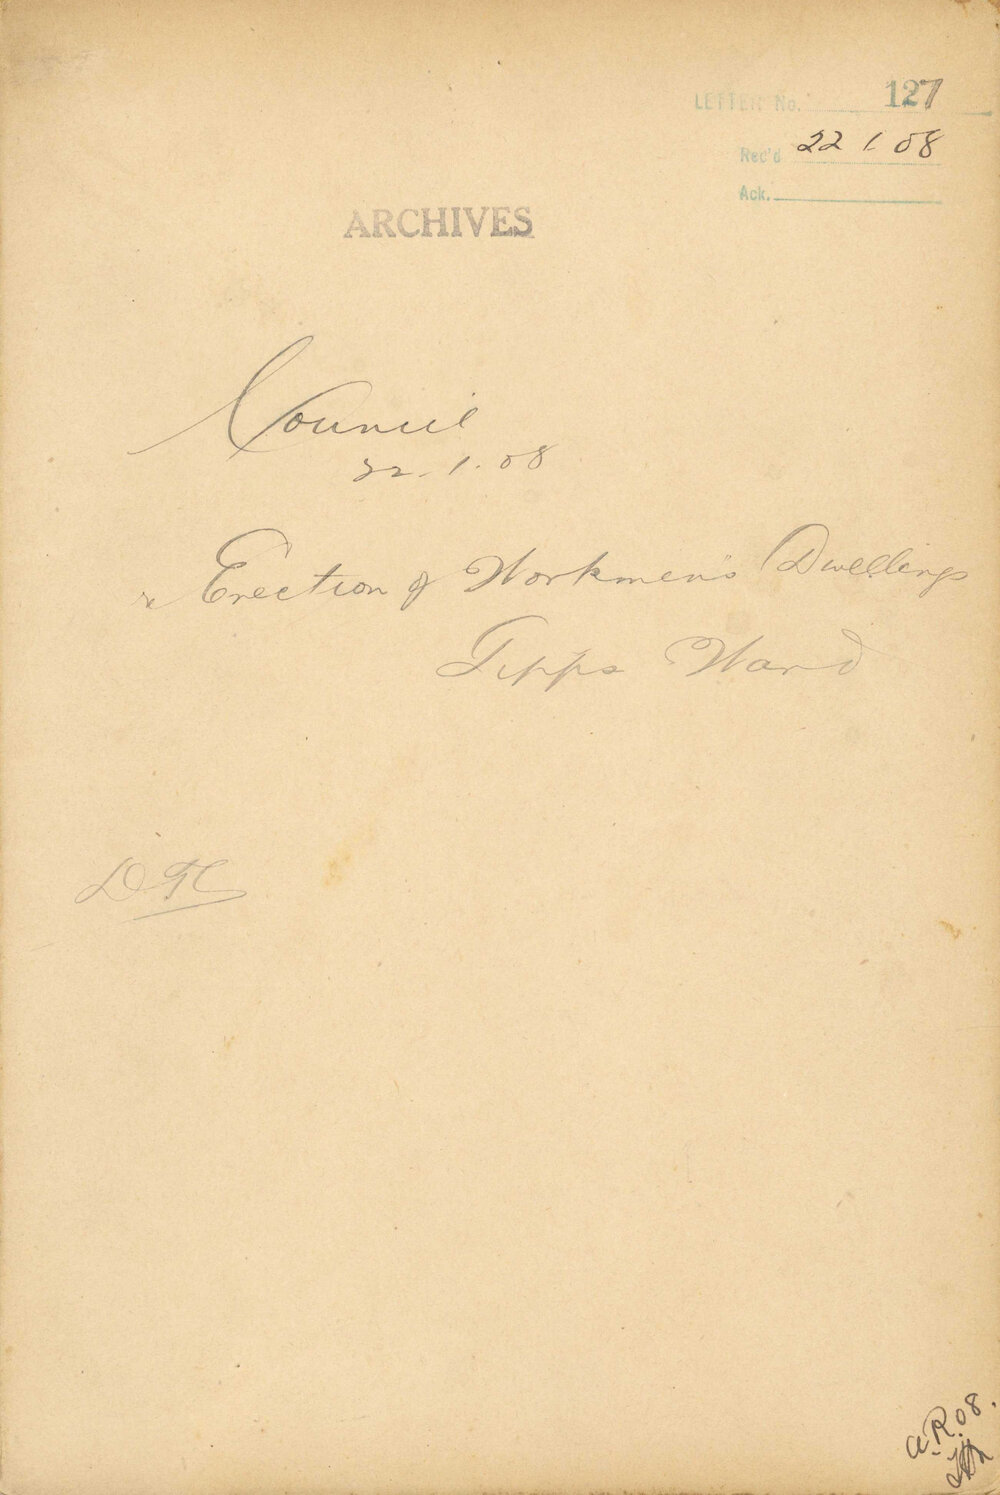 LETTER No. 127
Rec'd 22 1. 08
Ack.
ARCHIVES
Council
22. 1. 08
Erection of Workmen's Dwellings
Tipps Ward
a.R.08.